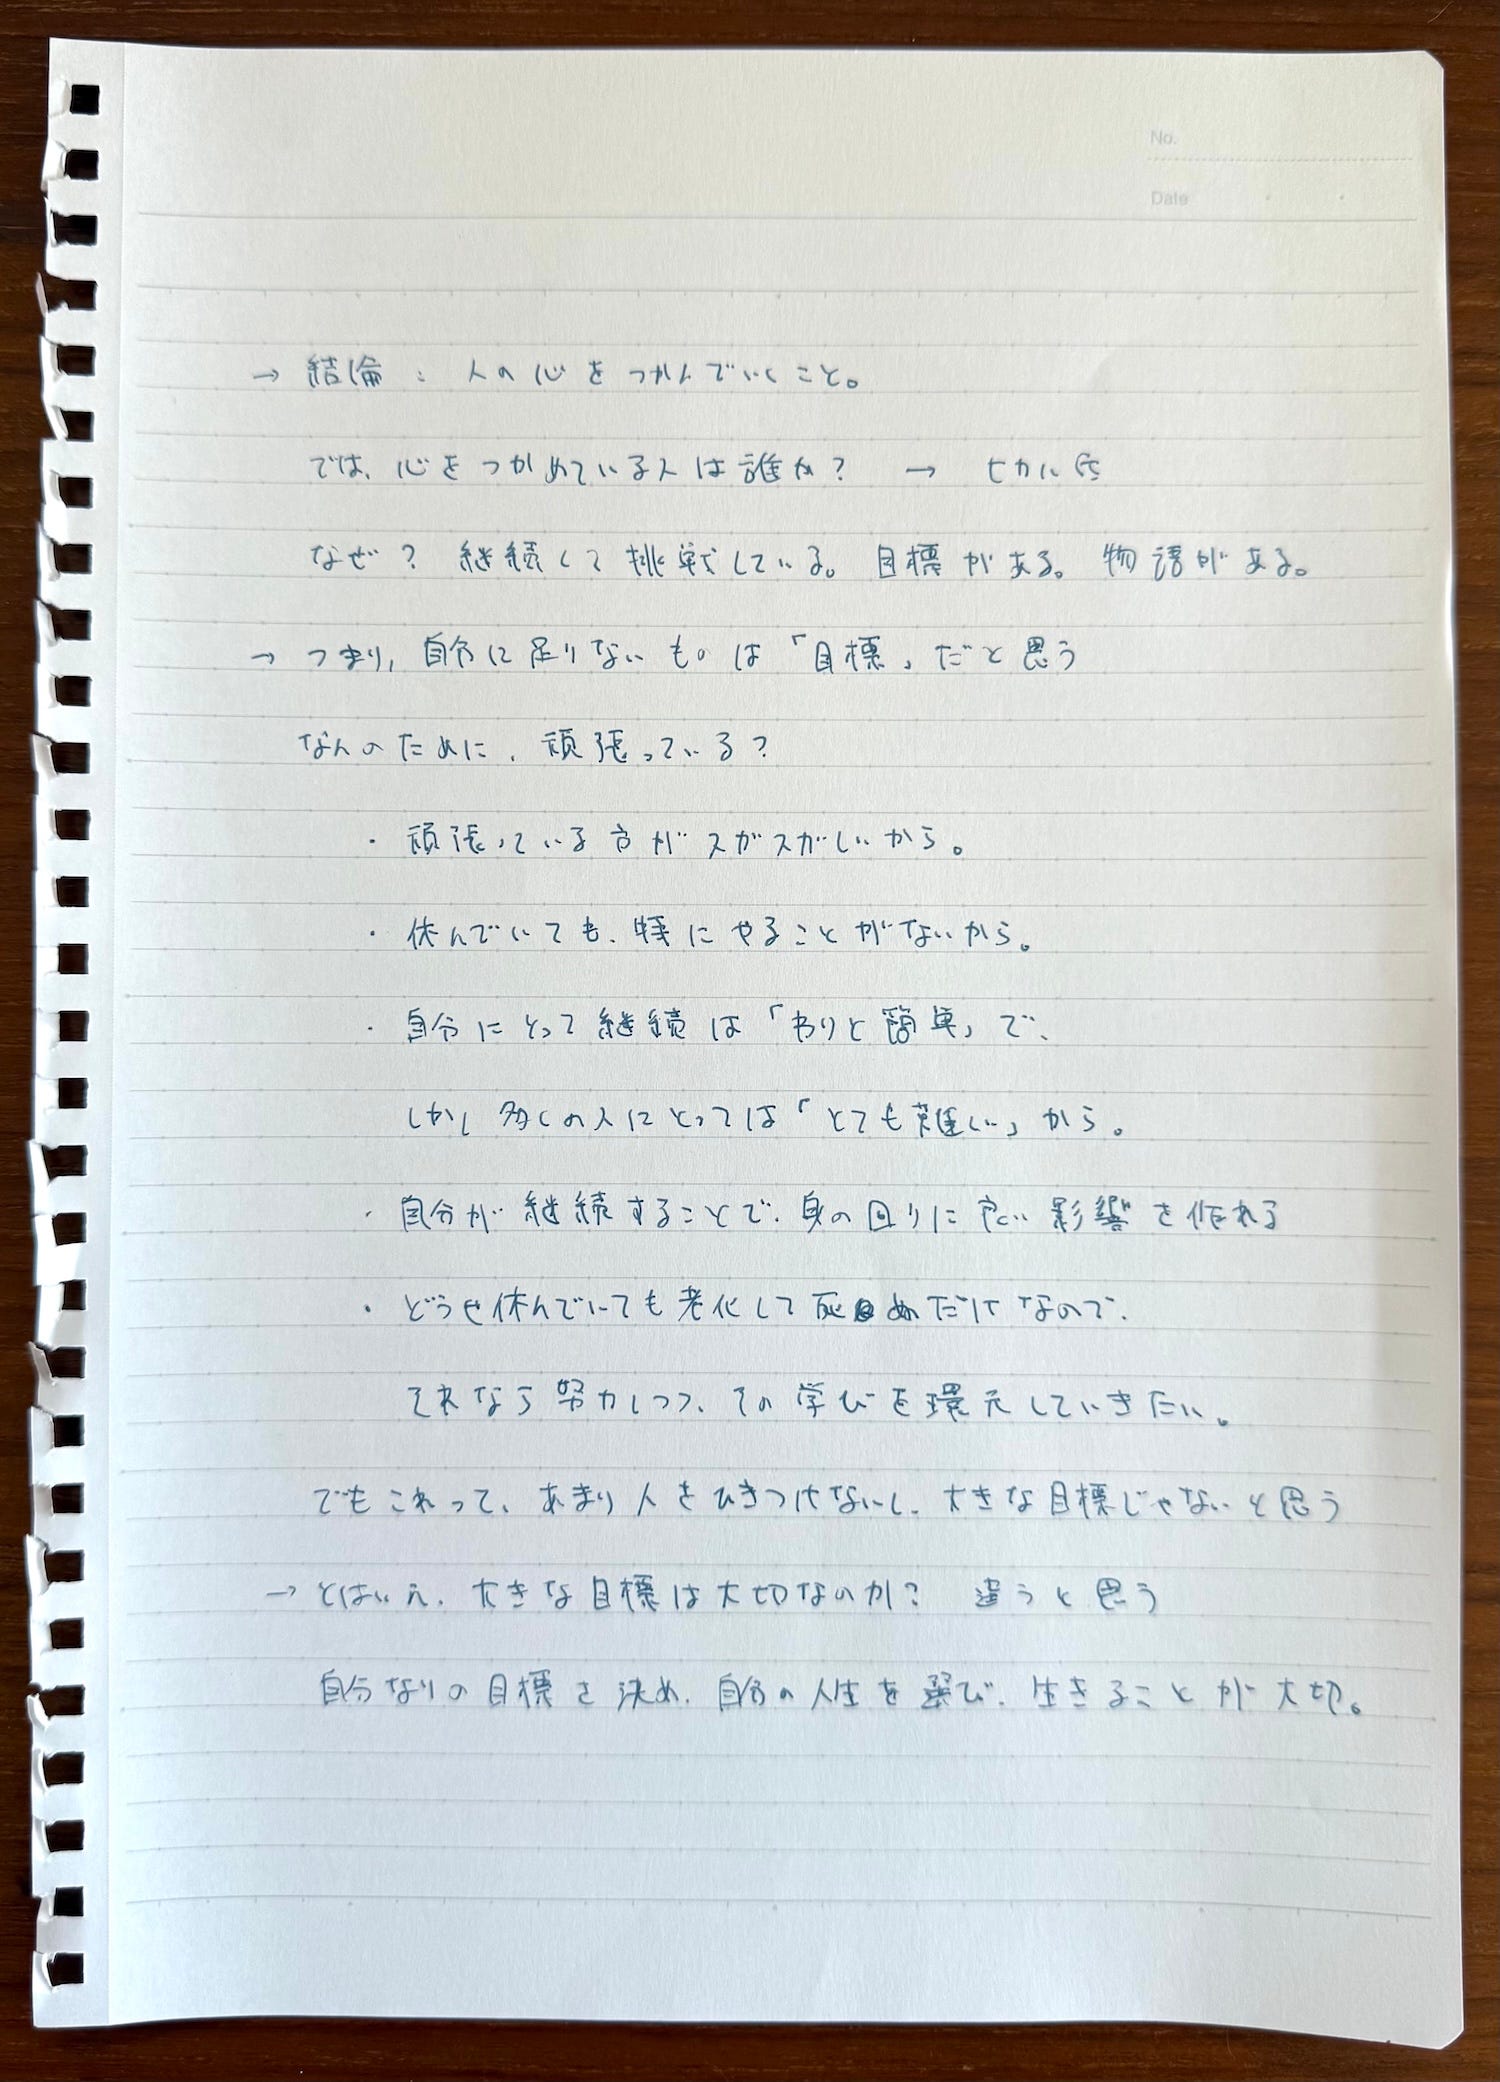 No.
Date
→ 結論：人の心をつかんでいくこと。
では、心をつかめている人は誰か？ → ヒカル氏
なぜ？ 継続して挑戦している。目標がある。物語がある。
→ つまり、自分に足りないものは「目標」だと思う
なんのために、頑張っている？
・頑張っている方がスガスガしいから。
・休んでいても、特にやることがないから。
・自分にとって継続は「わりと簡単」で、
しかし多くの人にとっては「とても難しい」から。
・自分が継続することで、身の回りに良い影響を作れる
・どうせ休んでいても老化して死ぬだけなので、
それなら努力しつつ、その学びを還元していきたい。
でもこれって、あまり人をひきつけないし、大きな目標じゃないと思う
→ とはいえ、大きな目標は大切なのか？ 違うと思う
自分なりの目標を決め、自分の人生を選び、生きることが大切。